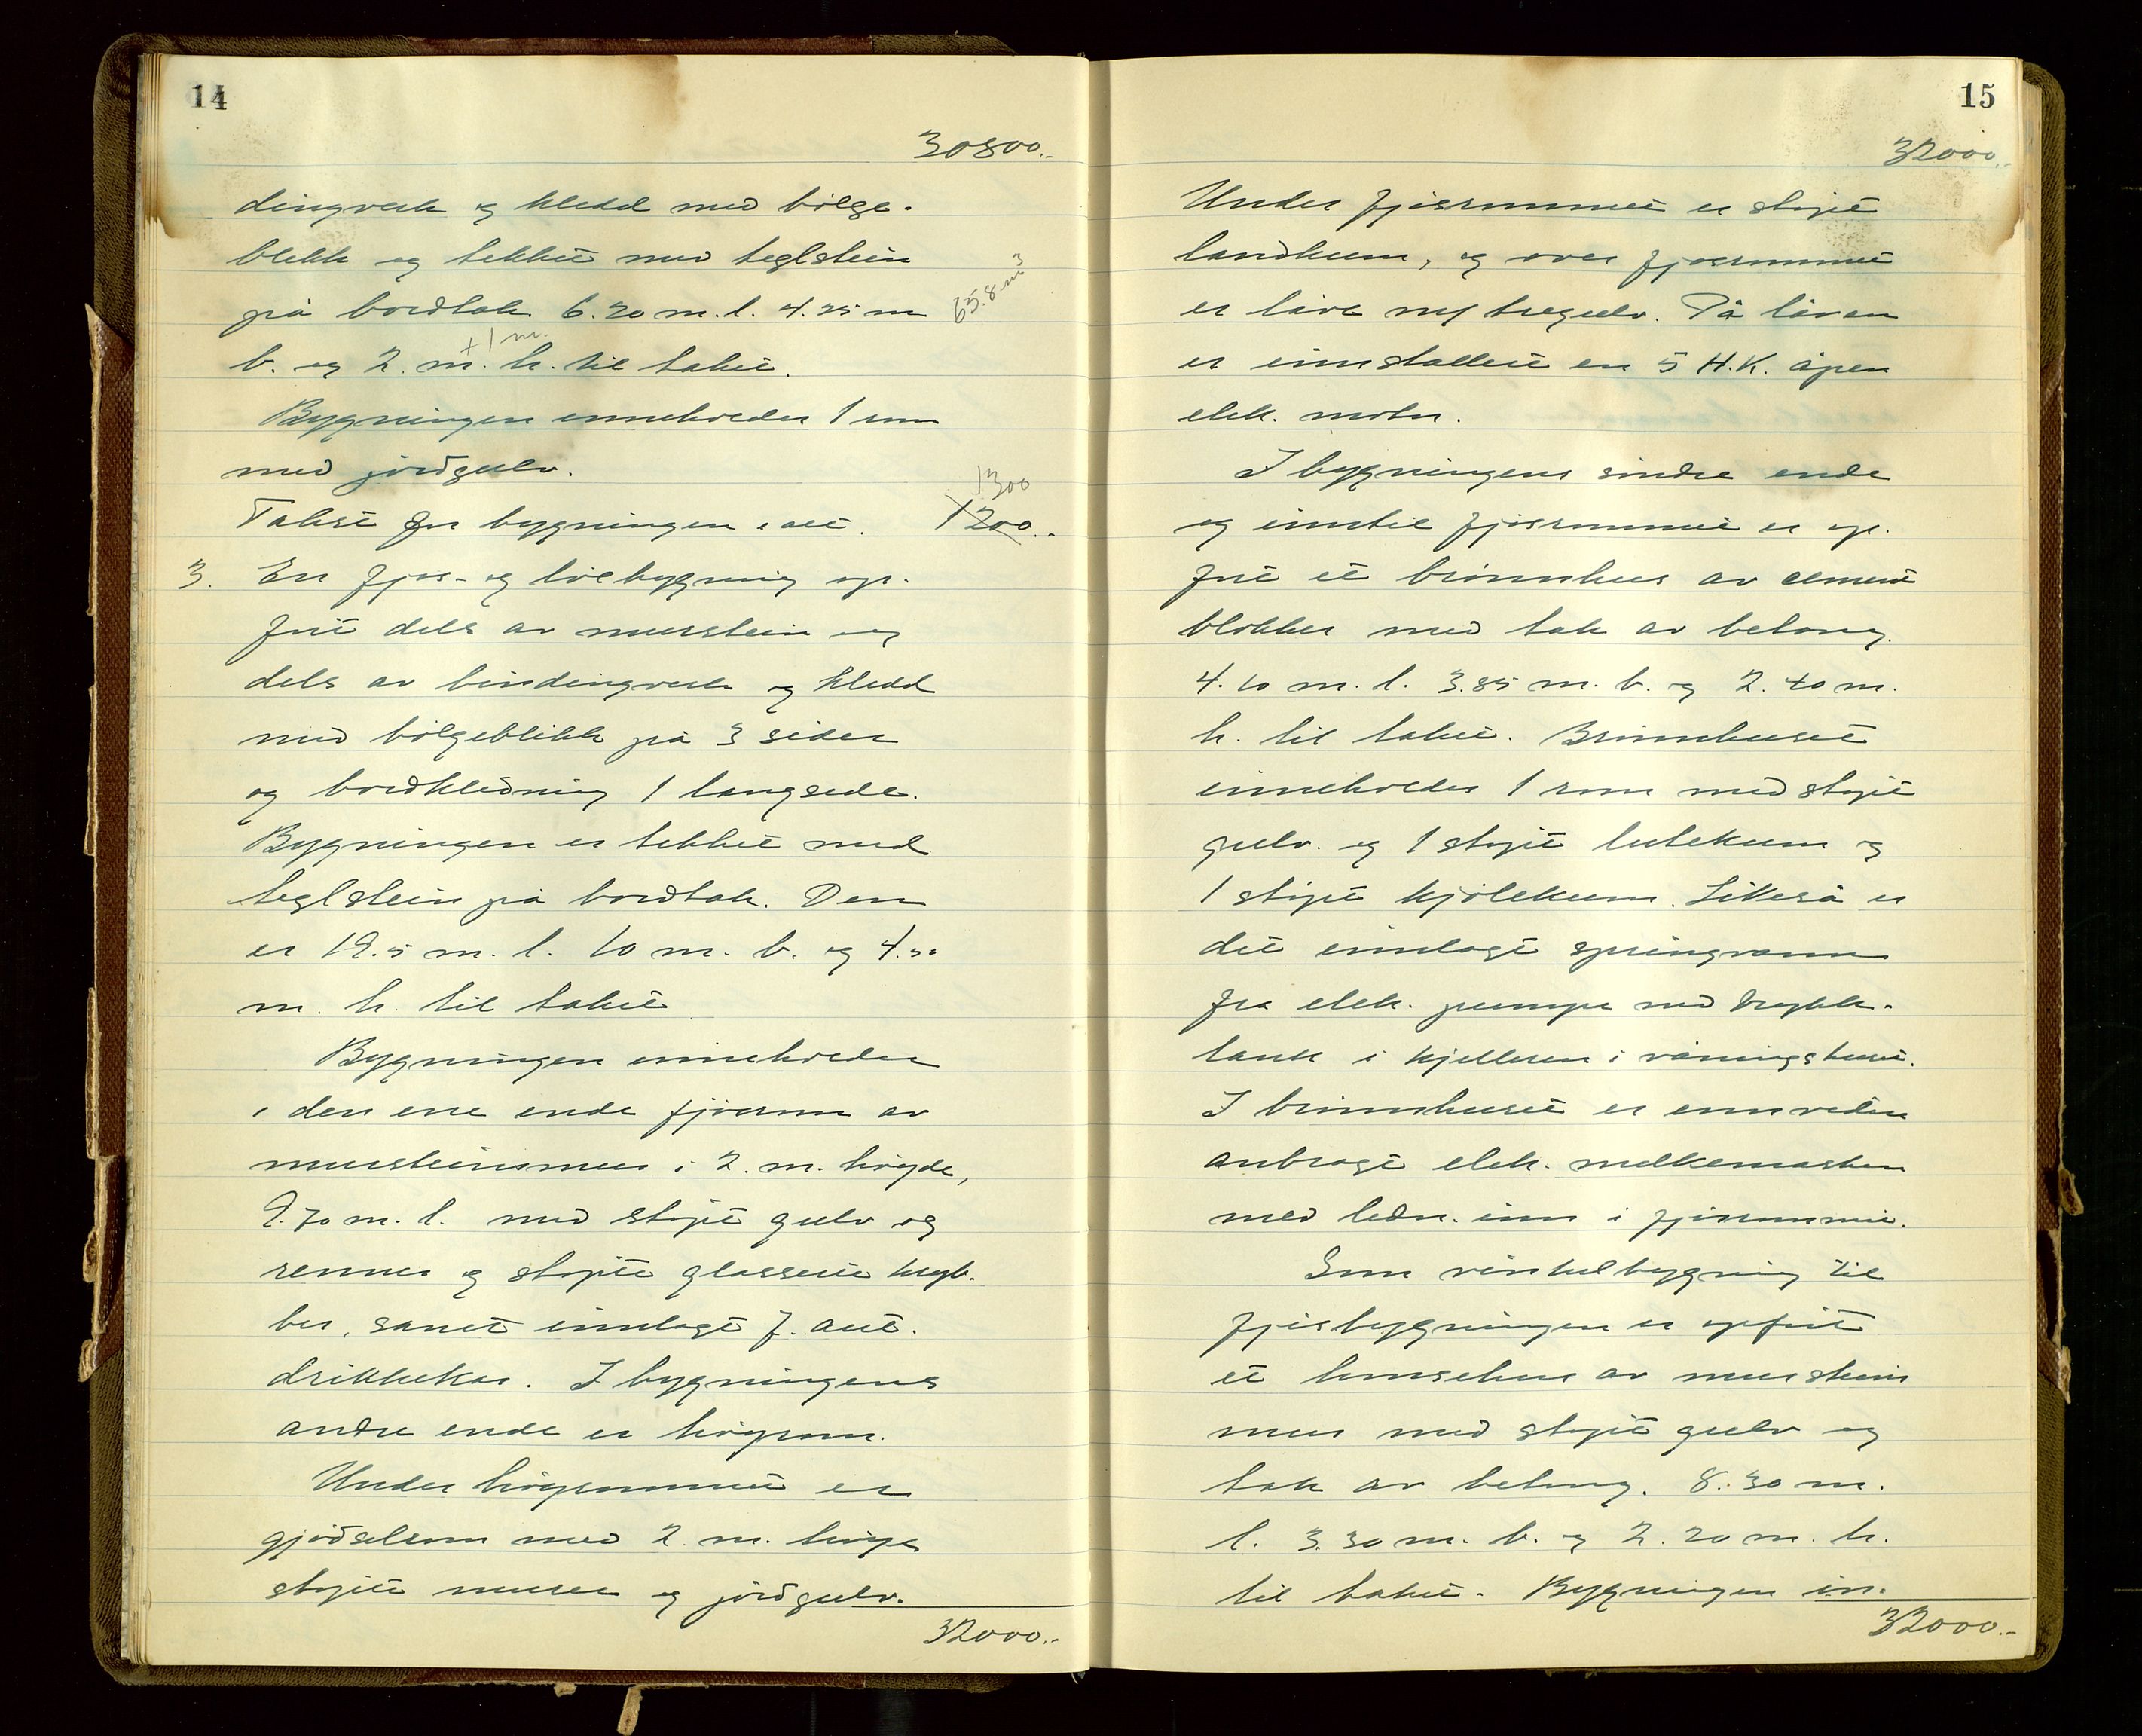 14
30800.-
dingverk og kledd med bölge-
blekk og tekket med teglstein
på bordtak 6.20 m. l. 4.25 m
65.8 m³
+1 m.
b. og 2. m. h. til taket.
Bygningen inneholder 1 rom
med jordgulv.
1300
Takst for bygningen i alt. 1200.-
3. En fjos- og löebygning op-
fört dels av murstein og
dels av bindingverk og kledd
med bölgeblikk på 3 sider
og bordkledning 1 langside.
Bygningen er tekket med
teglstein på bordtak. Den
er 19.5 m. l. 10 m. b. og 4.50
m. h. til taket
Bygningen inneholder
i den ene ende fjösrom av
mursteinsmur i 2. m. höyde,
9.70 m. l. med stöpt gulv og
renner og stöpte glasserte kryb-
ber, samt innlagt f. aut.
drikkekar. I bygningens
andre ende er höyrom.
Under höyrommet er
gjödselrom med 2 m. höye
stöpte murer og jordgulv.
32000.-
15
32000.-
Under fjösrommet er stöpt
landkum, og over fjösrommet
er låve m/ tregulv. På låven
er innstallert en 5 H.K. åpen
elek. motor.
I bygningens söndre ende
og inntil fjösrommet er op-
fört et brönnhus av cement
blokker med tak av betong.
4.10 m. l. 3.85 m. b. og 2.40 m.
h. til taket. Brönnhuset
inneholder 1 rom med stöpt
gulv. og 1 stöpt lutekum og
1 stöpt kjölekum. Likeså er
det innlagt springvann
fra elek. pumpe med trykk-
tank i kjelleren i våningshuset.
I brönnhuset er ennvidere
anbragt elek. melkemaskin
med ledn. inn i fjösrommet.
Som vinkelbygning til
fjösbygningen er opfört
et hönsehus av murstein
mur med stöpt gulv og
tak av betong. 8.30 m.
l. 3.30 m. b. og 2.20 m. h.
til taket. Bygningen in-
32000.-